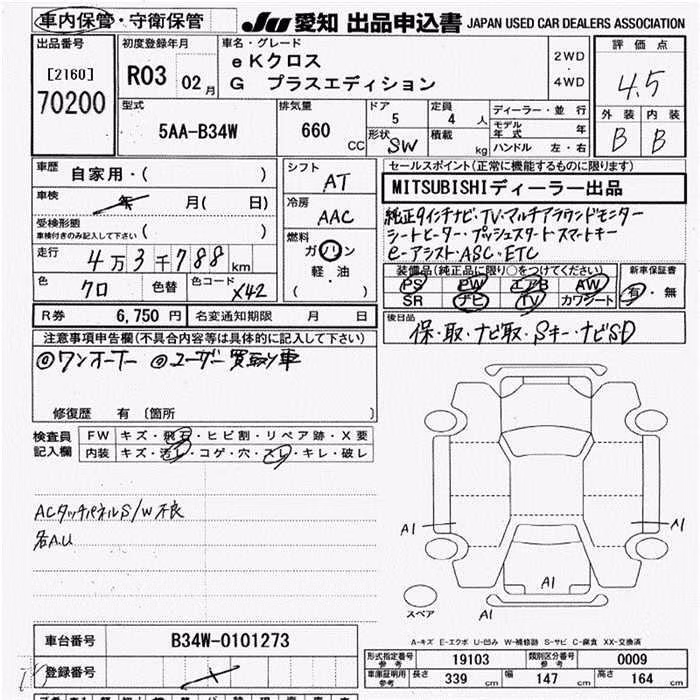 車内保管・守衛保管 JU 愛知 出品申込書 JAPAN USED CAR DEALERS ASSOCIATION
出品番号 初度登録年月 車名・グレード 評価点
[2160] R03 02月 eKクロス 2WD・4WD 4.5
70200 G プラスエディション
型式 排気量 ドア 定員 ディーラー・並行 外装 内装
5AA-B34W 660 CC 5 4人 モデル年式 年 B B
形状 SW 積載 kg ハンドル 左・右
車歴 自家用・( ) シフト AT セールスポイント(正常に機能するものに限ります)
車検 年 月( 日) 冷房 AAC MITSUBISHIディーラー出品
受検形態 車検付きのみ記入して下さい ( ) 燃料 純正9インチナビ・TV・マルチアラウンドモニター
走行 4万3千788km ガソリン シートヒーター・プッシュスタート・スマートキー
軽・油 e-アシスト・ASC・ETC
( )
色 クロ 色替 色コード X42 装備品(純正品に限り○をつけてください) 新車保証書
PS PW エアB AW 有・無
SR ナビ TV カワシート
R券 6,750円 名変通知期限 月 日 後日品
注意事項申告欄(不具合内容等は具体的に記入して下さい) 保・取・ナビ取・Sキー・ナビSD
◎ワンオーナー ◎ユーザー買取り車
修復歴 有 〔箇所 〕
検査員記入欄 FW キズ・飛石・ヒビ割・リペア跡・X要
内装 キズ・汚レ・コゲ・穴・スレ・キレ・破レ
ACタッチパネルS/W不良
各A.U
A1 A1
A1
スペア A1
A-キズ E-エクボ U-凹み W-補修跡 S-サビ C-腐食 XX-交換済
車台番号 B34W-0101273
形式指定番号 参考 19103 類別区分番号 参考 0009
登録番号
車庫証明用 参考 長さ 339 cm 幅 147 cm 高さ 164 cm